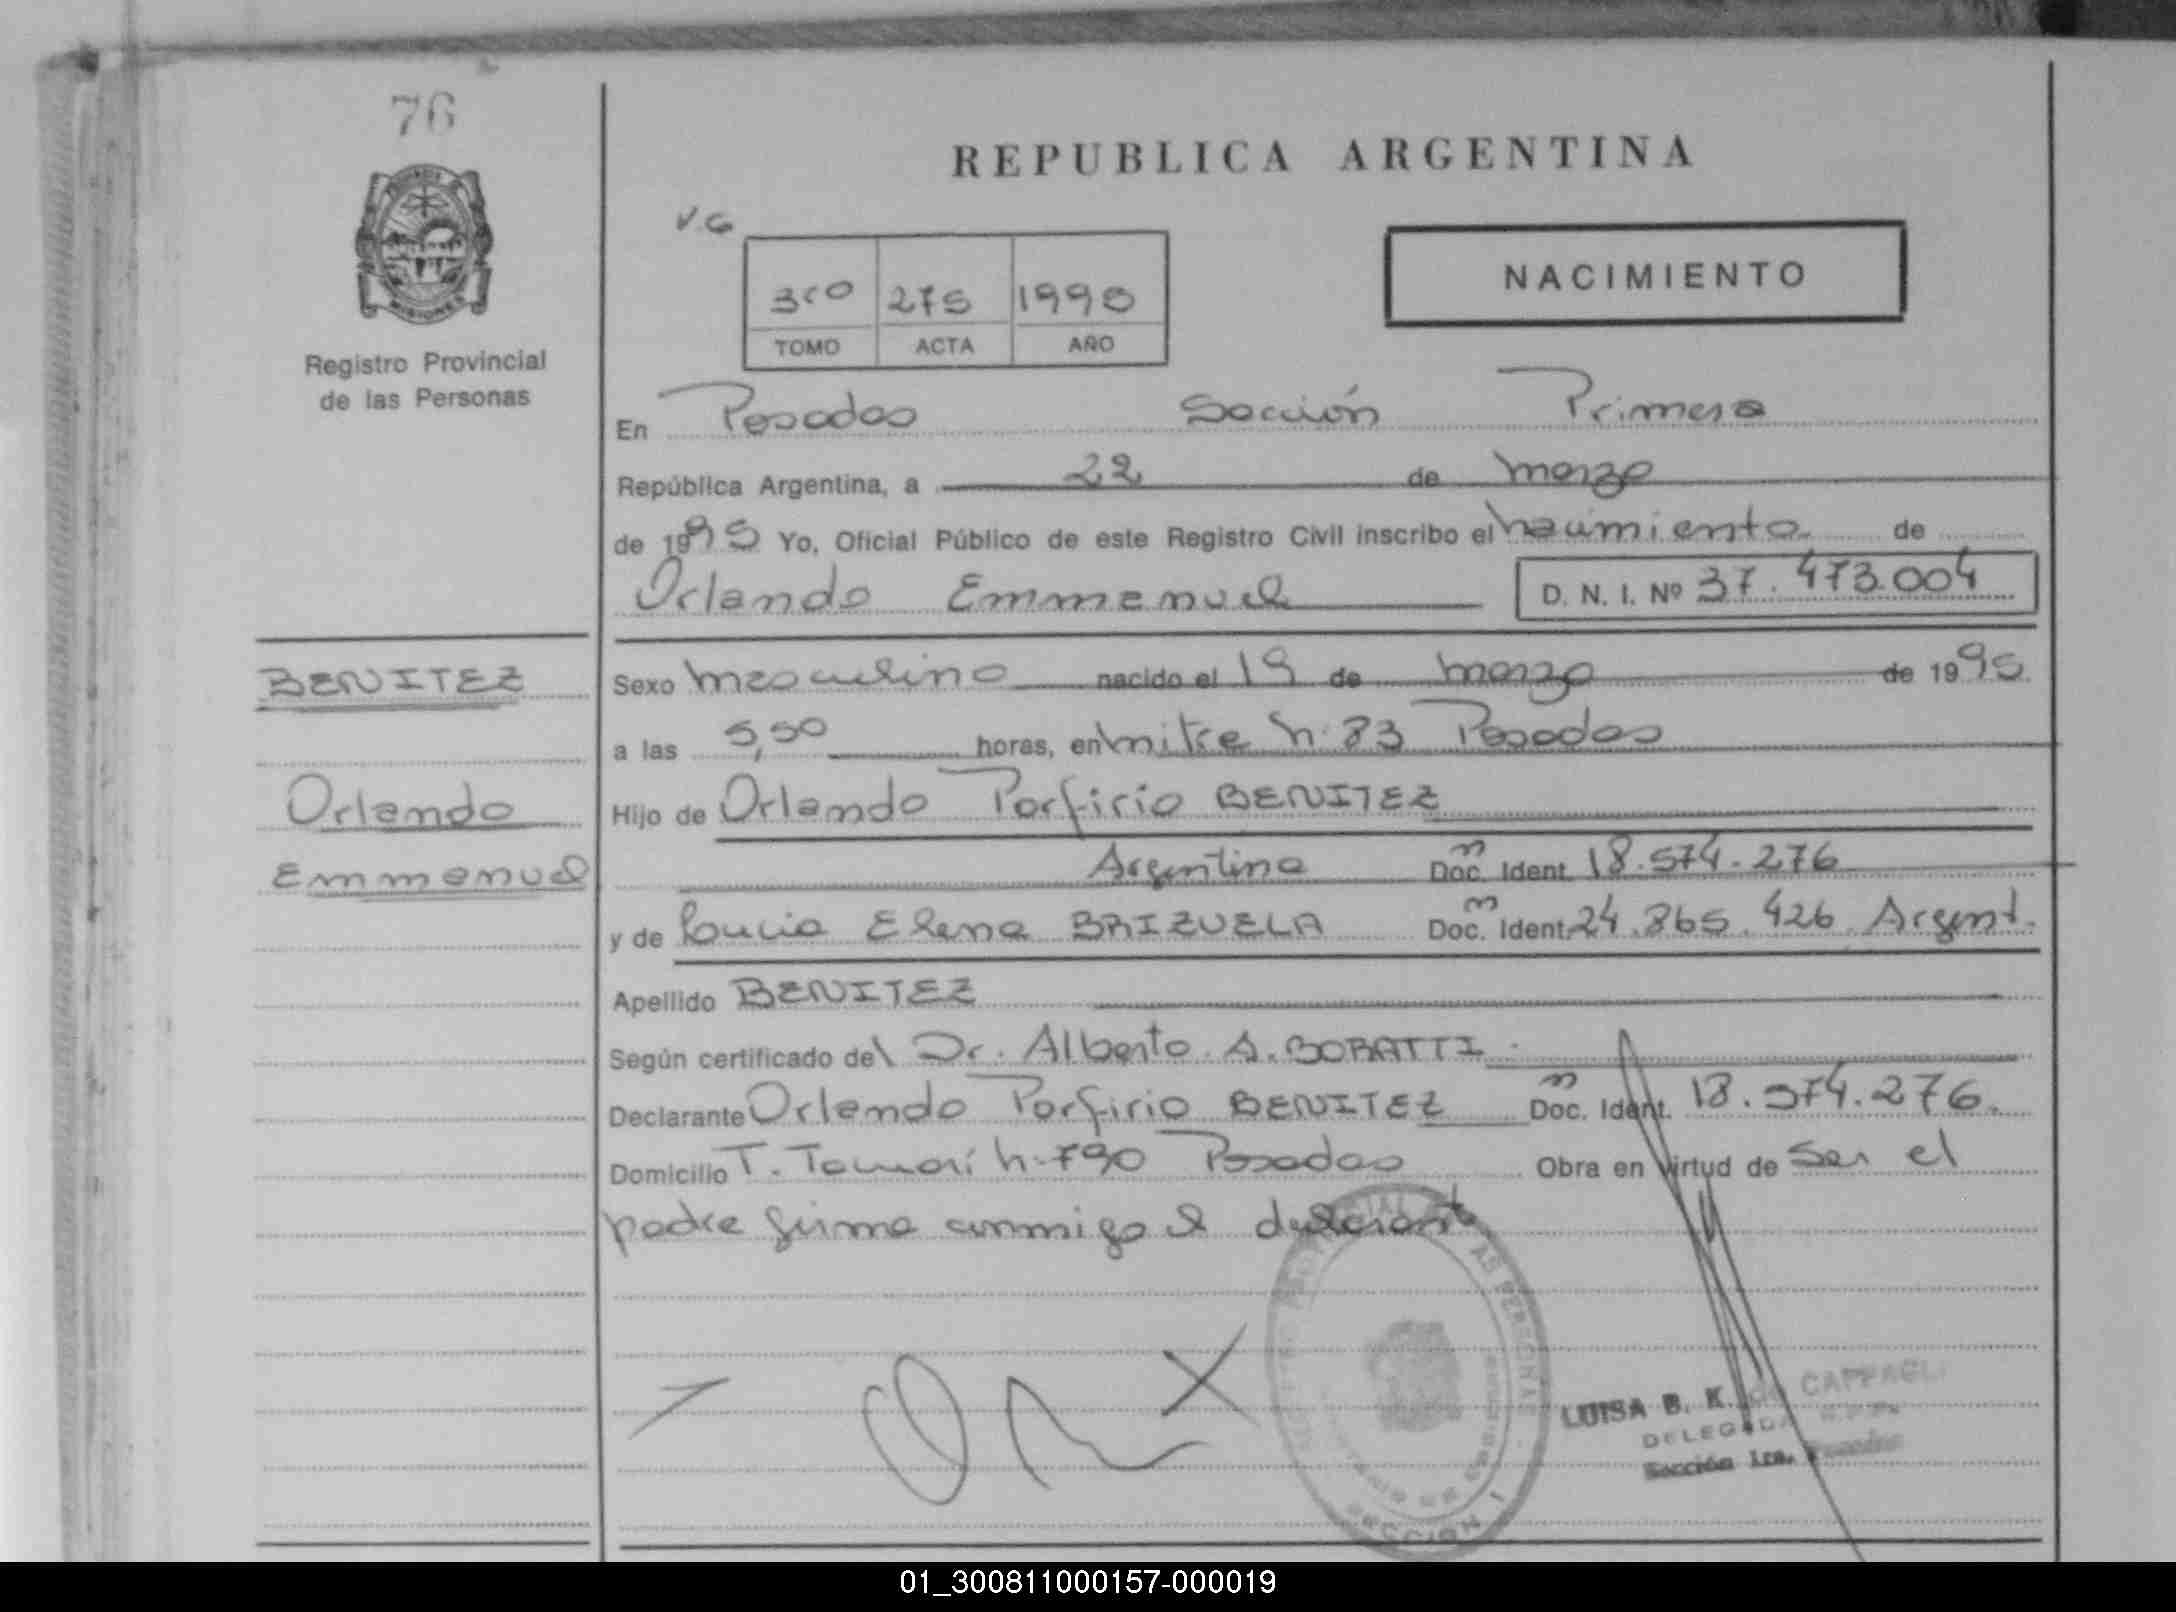 76
REPUBLICA ARGENTINA
V.G
NACIMIENTO
3ro 275 1995
TOMO ACTA AÑO
Registro Provincial
de las Personas
En Posadas Sección Primera
República Argentina, a 22 de marzo
de 1995 Yo, Oficial Público de este Registro Civil inscribo el nacimiento de
Orlando Emmanuel D. N. I. Nº 37.473.004
BENITEZ
Orlando
Emmanuel
Sexo masculino nacido el 19 de marzo de 1995.
a las 5,50 horas, en mitre n: 83 Posadas
Hijo de Orlando Porfirio BENITEZ
Argentino Doc. Ident. 18.574.276
y de Lucia Elena BRIZUELA Doc. Ident. 24.865.426 Argent.
Apellido BENITEZ
Según certificado del Dr. Alberto A. BORATTI.
Declarante Orlando Porfirio BENITEZ Doc. Ident. 18.574.276.
Domicilio T. n: 790 Posadas Obra en virtud de ser el
padre firma conmigo el declarante
LUISA B. K. de CAPPAGLI
DELEGADA R.P.P.
Sección 1ra. Posadas
SECCION I
01_300811000157-000019